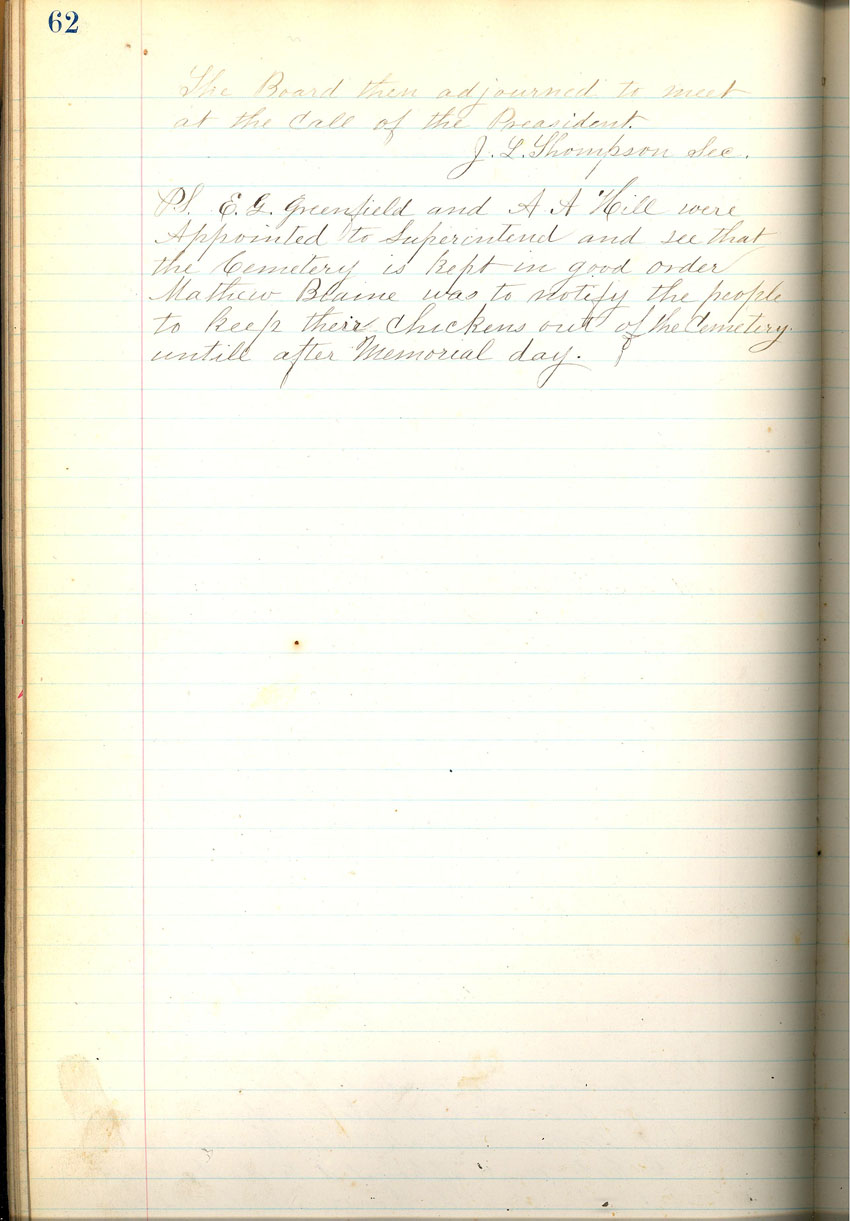 62
The Board then adjourned to meet
at the Call of the Preasident.
J. L. Thompson Sec.
PS. E. G. Greenfield and A A Hill were
Appointed to Superintend and see that
the Cemetery is kept in good order
Mathew Blaine was to notify the people
to keep their Chickens out of the Cemetery
untill after Memorial day.